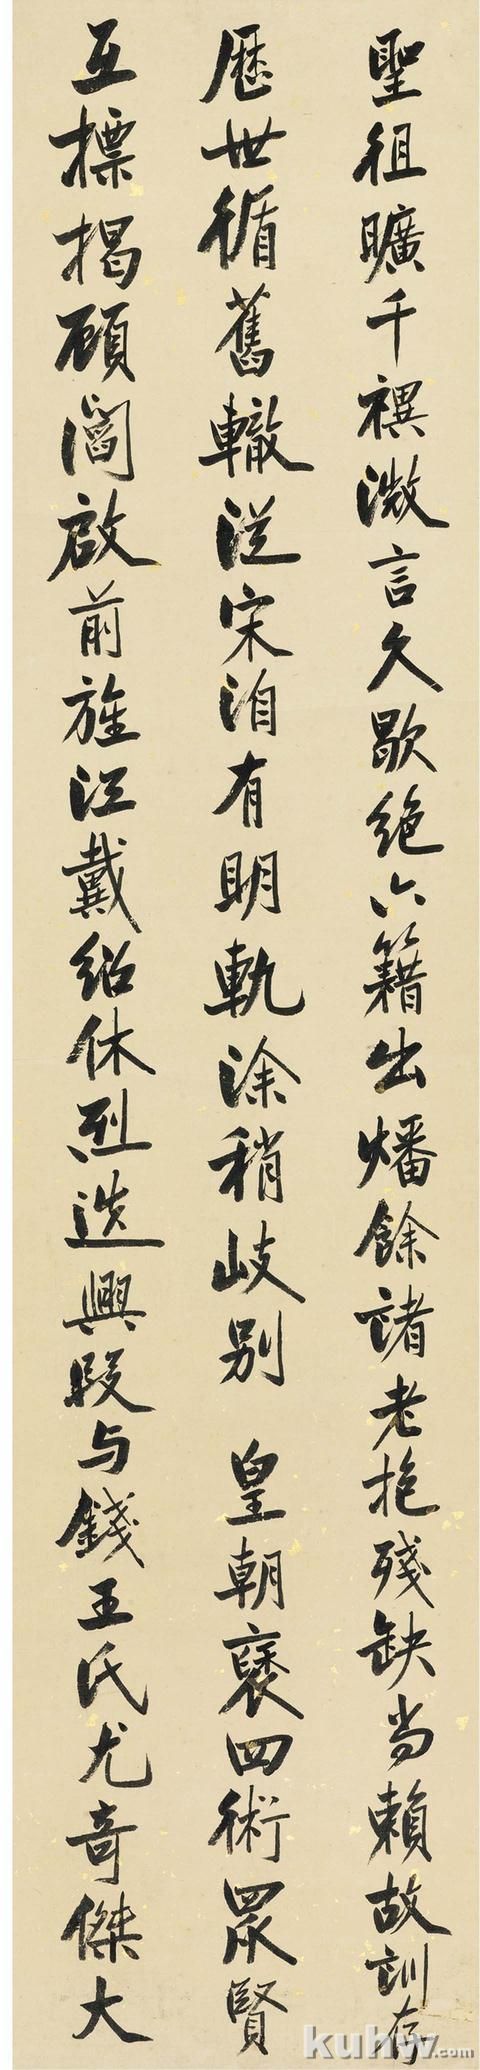 聖徂曠千禩微言久歇絕六籍出燔餘諸老抱殘缺尚賴故訓存
歷世循舊轍從宋洎有明軌涂稍歧別 皇朝褒四術眾賢
互標揭顧閻啟前旌江戴紹休烈迭興段与錢王氏尤奇傑大
kuhw.com